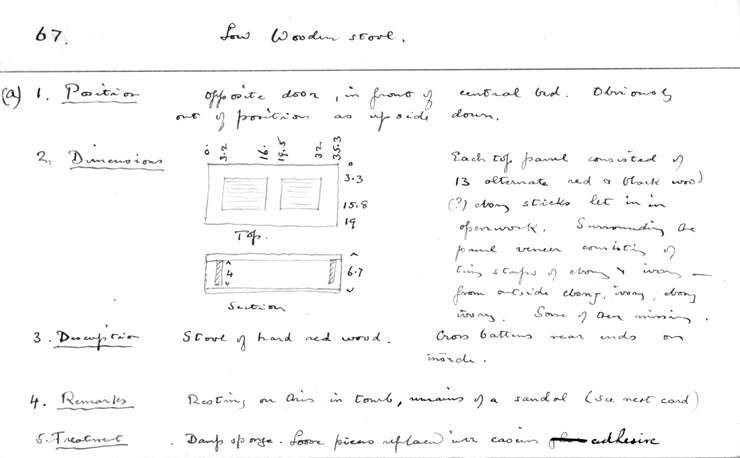 67. Low Wooden stool.
(a) 1. Position opposite door, in front of central bed. Obviously
out of position as upside down.
2. Dimensions
0. 3.2 16. 19.5 32 35.3
0
3.3
15.8
19
Top.
4 6.7
Section
Each top panel consisted of
13 alternate red & black wood
(?) ebony sticks let in in
openwork. Surrounding the
panel veneer consisting of
tiny strips of ebony & ivory —
from outside ebony, ivory, ebony
ivory. Some of them missing.
3. Description Stool of hard red wood. Cross battens near ends on
inside.
4. Remarks Resting on this in tomb, remains of a sandal (see next card)
5. Treatment. Damp sponge. Loose pieces replaced with casein adhesive